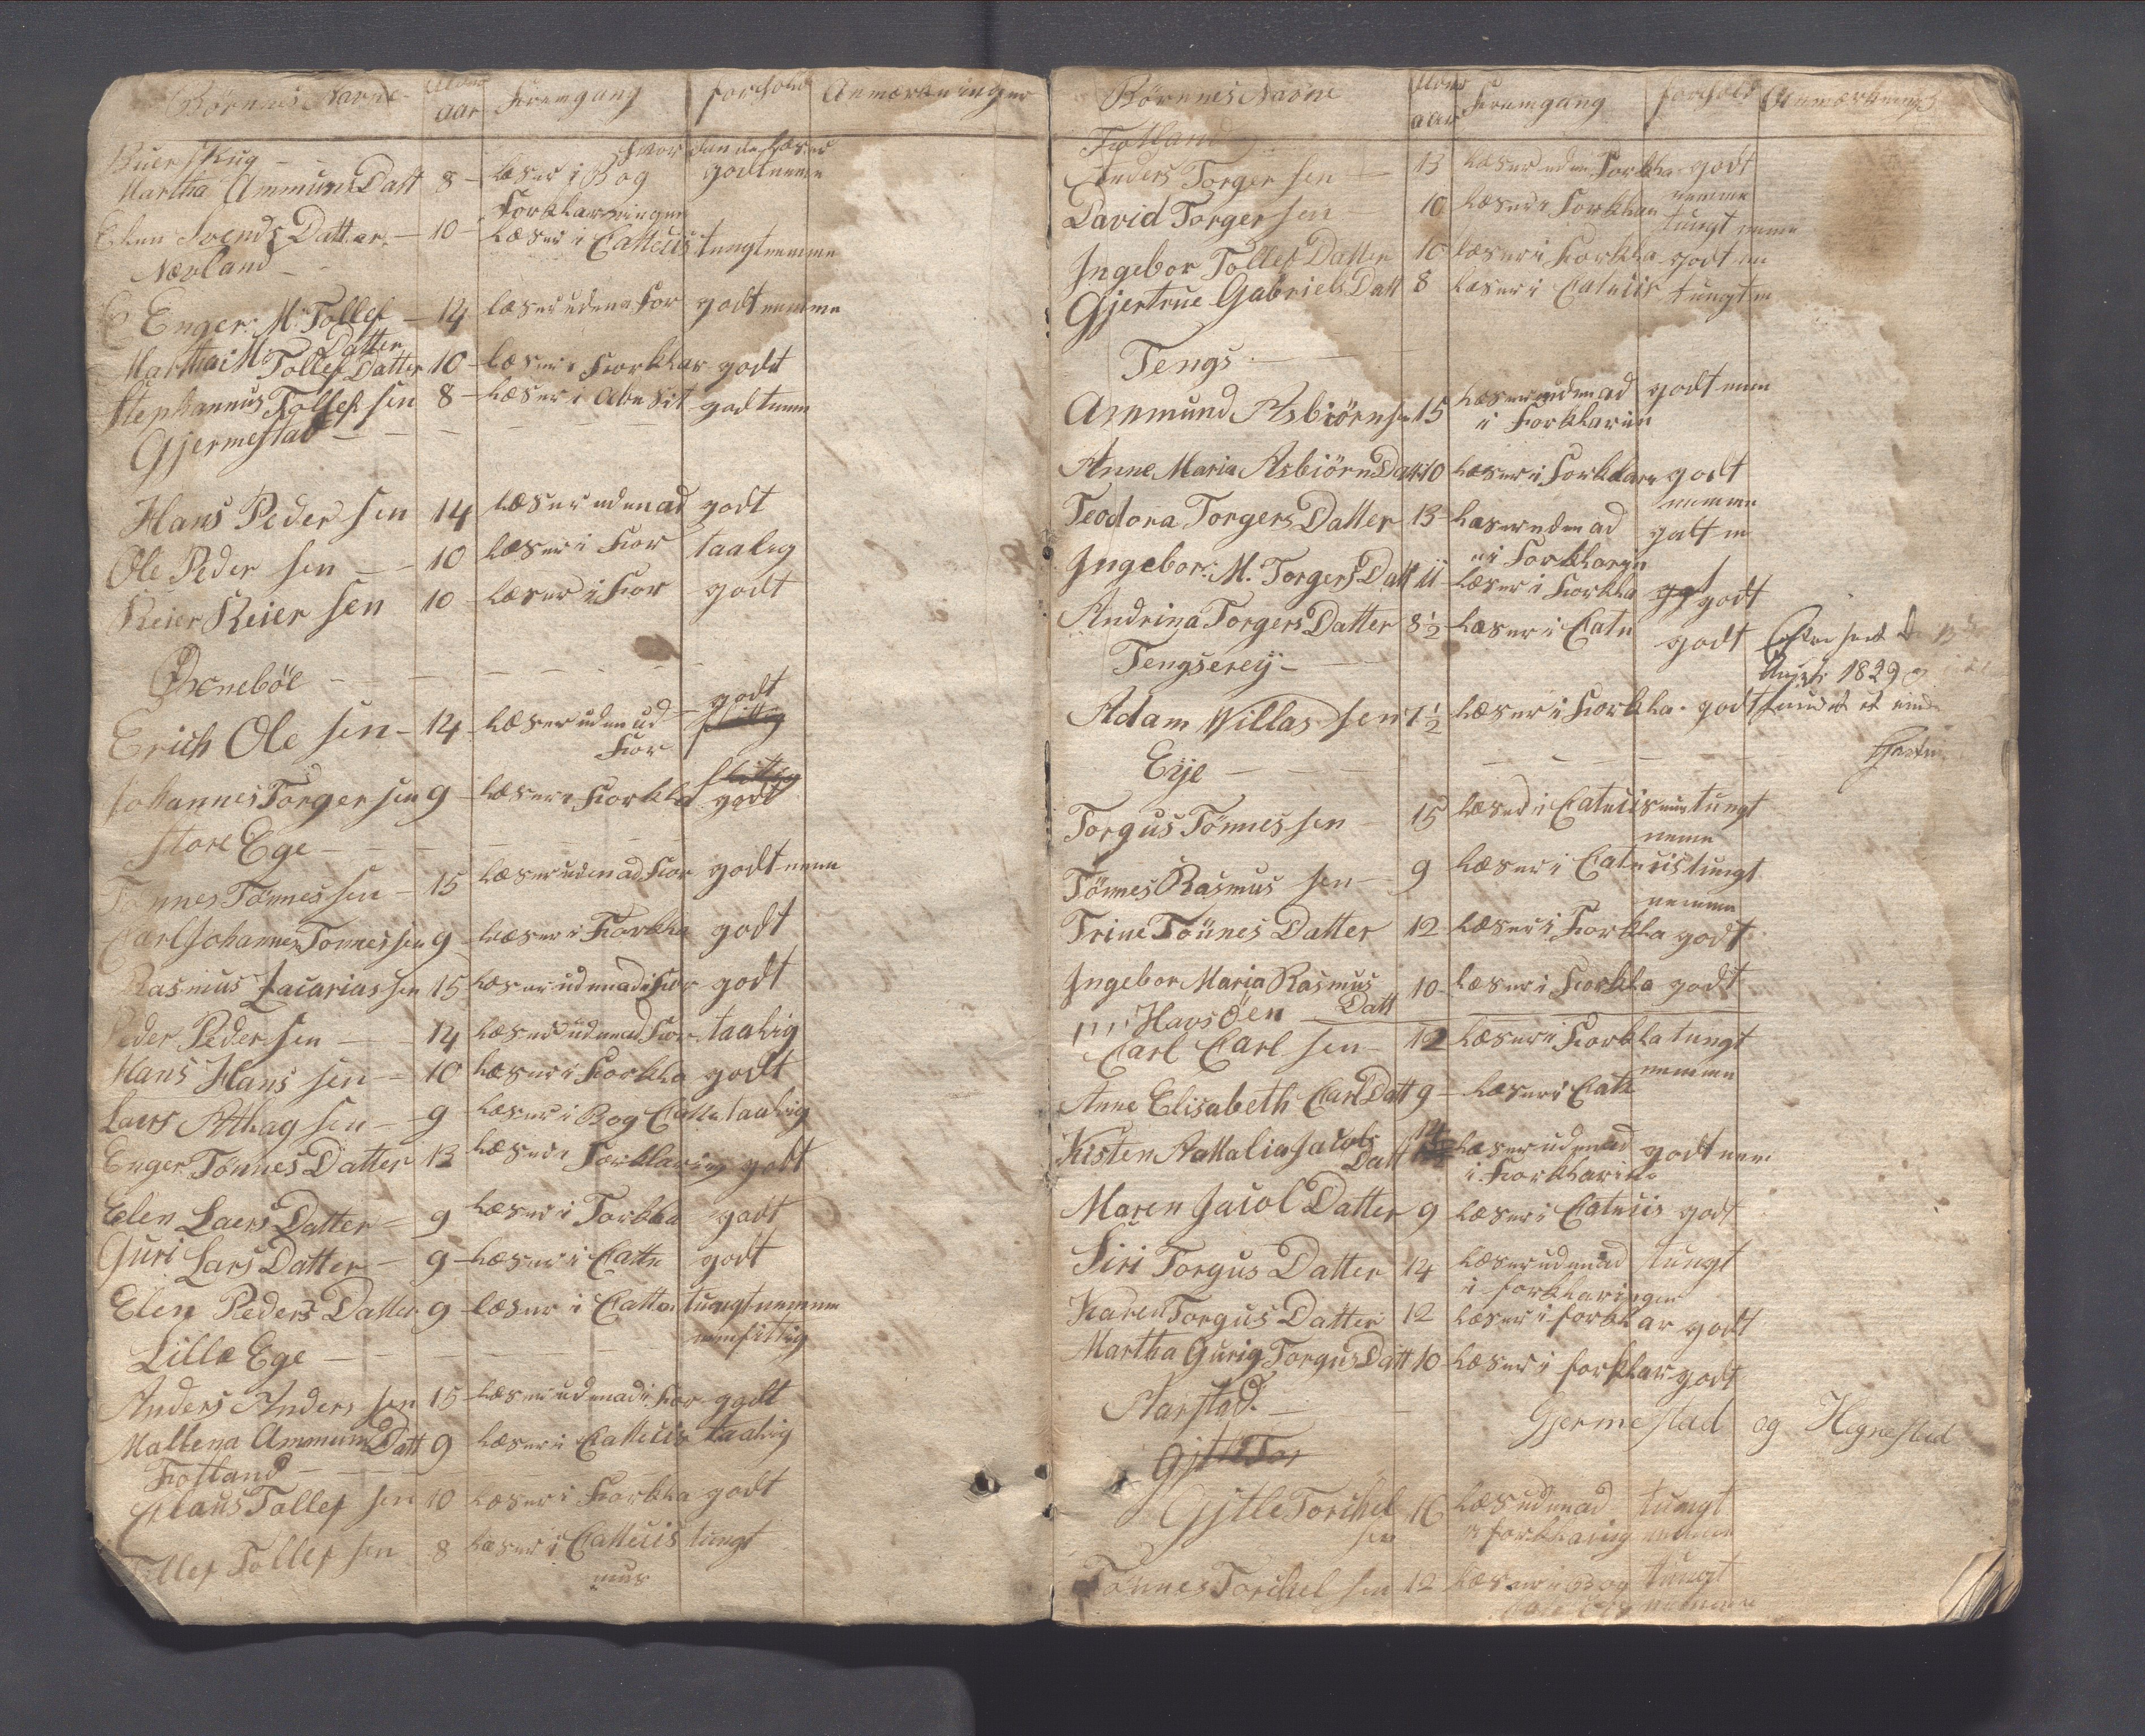 Børnnes Navne Alder aar Fremgang forhold Anmærkninger
Buerskug - - hvor Function
Martha AmmunsDatt 8 - læser i Bog godt nemme
Forklaaringen
Elen Svends Datter - 10 - læser i Catteus tungt nemme
Nærland - -
Enger: M: Tollef - 14 læser udena For godt nemme
Datter
Martha: M: Tollef Datter 10 - læser i Forklar godt
Stephannus Tollef sen 8 - læser i Abesit godt nem
Gjermestad - - -
Hans Peder sen 14 læser udenad godt
Ole Peder sen - - 10 læser i For taalig
Reier Reier sen 10 læser i For godt
Øxnebøe - - -
godt
Erich Ole sen - 14 - læser uden ud flittig
For
flittig
Johannes Torger sen 9 - læser i Forkla godt
store Ege - - -
Tønnes Tønnes sen - 15 læser udenad For godt nem
Carl Johannes Tonnes sen 9 - læser i Forkla godt
Rasmus Zacarias sen 15 læser udenad i For godt
Peder Peder sen - 14 læser udenad For taalig
Hans Hans sen - 10 læser i Forkla godt
Laers Athag sen - 9 læser i Bog Catte taalig
Enger Tønnes Datter 13 læser i Forklaring godt
Elen Laers Datter - 9 læser i Forkla godt
Guri Lars Datter - 9 - læser i Catte godt
Elen Peders Datter 9 - læser i Catte tungt nemme
Lille Ege - - -
Anders Anders sen 15 læser udenad i For godt
Mallena AmmunsDatt 9 læser i Catteus taalig
Fotland - - -
Claus Tollef sen 10 læser i Forkla godt
Tollef Tollef sen 8 læser i Catteus tungt
Børnnes Navne Alder aar Fremgang forhold Anmærkning
Fotland
Anders Torger sen - 13 læser uden Forkla godt
nemme
David Torger sen 10 læser i Forklar tungt nemme
Ingebor Tollef Datter 10 læser i Forkla godt ne
Gjertrue Gabriels Datt 8 læser i Cateus tungt n
Tengs - - -
Ammund Asbiörnsen 15 læser udenad godt nem
i Forklarin
Anne Maria AsbiörnDatt 10 læser i Forklare godt
nemme
Teodora Torgers Datter 13 - læser udenad godt n
i Forklarin
Ingebor: M. Torgers Datt 11 - læser i Forkla godt
Andrina Torgers Datter 8½ - læser i Cate godt
Tengserey - - 1829
Adam Willas sen 7½ læser i Forkla - godt
Eije - - -
Torgus Tönnes sen - 15 læser i Cateus tungt
nemme
Tönnes Rasmus sen - 9 læser i Cateus tungt
nemme
Trine Tönnes Datter 12 læser i Forkla godt
Ingebor Maria Rasmus 10 - læser i Forkla godt
Datt
Havsöen
Carl Carl sen - 12 læser i Forkla tungt
nemme
Anne Elisabeth Carl Datt 9 - læser i Cate
Kisten Nattalia Jacobs 14 læser udenad godt nem
Datt i Forklarin
Maren Jacol Datter 9 læser i Cateus godt
Siri Torgus Datter 14 læser udenad tungt
i forklaringen
Karen Torgus Datter 12 læser i forklar godt
Martha Gurig Torgus Datt 10 læser i forklar godt
Aarstad. - - Gjermestad og Hegnestad
Gitle Tor
Gitle Torchel 16 læs udenad tungt
sen i forklaring nemme
Tönnes Torchel sen 12 læser i Bog tungt
nemme